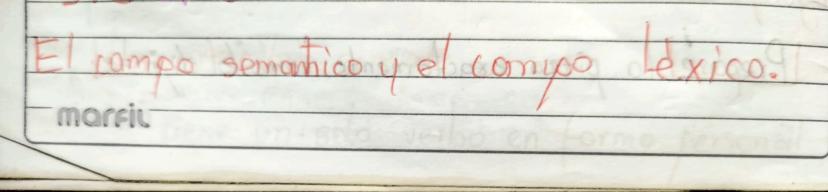 El campo semantico y el campo léxico.
marfil